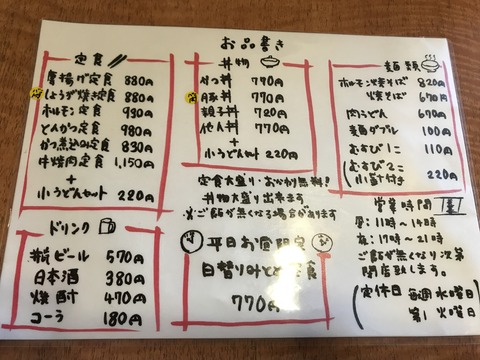 お品書き
定食
唐揚げ定食 880円
しょうが焼き定食 880円
ホルモン定食 930円
とんかつ定食 980円
かつ煮込み定食 830円
牛焼肉定食 1,150円
+
小うどんセット 220円
ドリンク
瓶ビール 570円
日本酒 380円
焼酎 470円
コーラ 180円
丼物
かつ丼 770円
豚丼 770円
親子丼 720円
他人丼 770円
+
小うどんセット 220円
定食大盛り・おかわり無料!
丼物大盛り出来ます
※ご飯が無くなる場合があります
平日お昼限定
日替り定食
770円
麺類
ホルモン焼そば 820円
焼そば 670円
肉うどん 670円
麺ダブル 100円
むすび1こ 110円
(むすび2こ
小鉢付き 220円)
営業時間
昼:11時〜14時
夜:17時〜21時
ご飯が無くなり次第
閉店致します。
(定休日 毎週水曜日
第1火曜日)